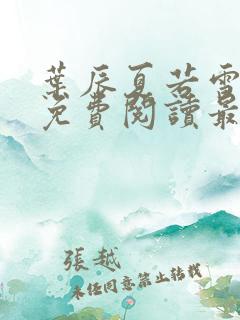 葉辰夏若雪
免費閱讀最
張越
未經同意禁止轉載